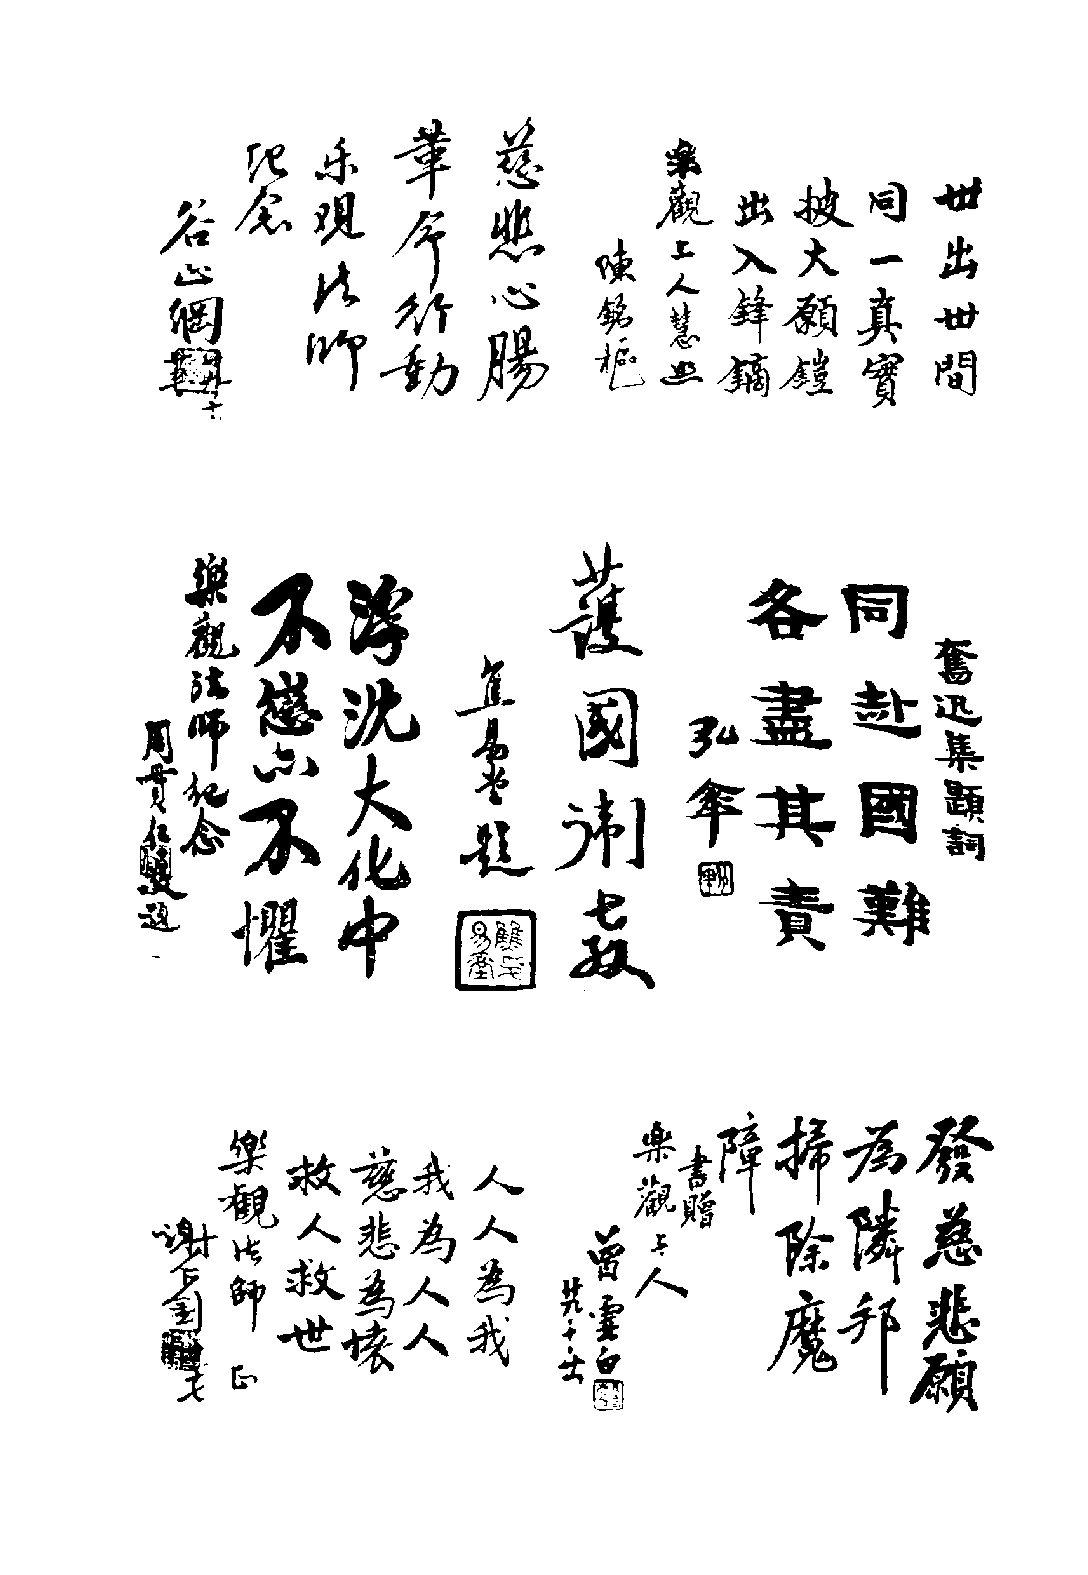 世出世間
同一真實
披大願鎧
出入鋒鏑
樂觀上人慧照
陳銘樞
慈悲心腸
革命行動
乐观法师
纪念
谷正綱
奮迅集題詞
同赴國難
各盡其責
弘傘
護國衛教
焦易堂題
浮沈大化中
不戀亦不懼
樂觀法師紀念
周貫仁題
發慈悲願
為隣邦
掃除魔
障
書贈
樂觀上人
曾虛白
人人為我
我為人人
慈悲為懷
救人救世
樂觀法師 正